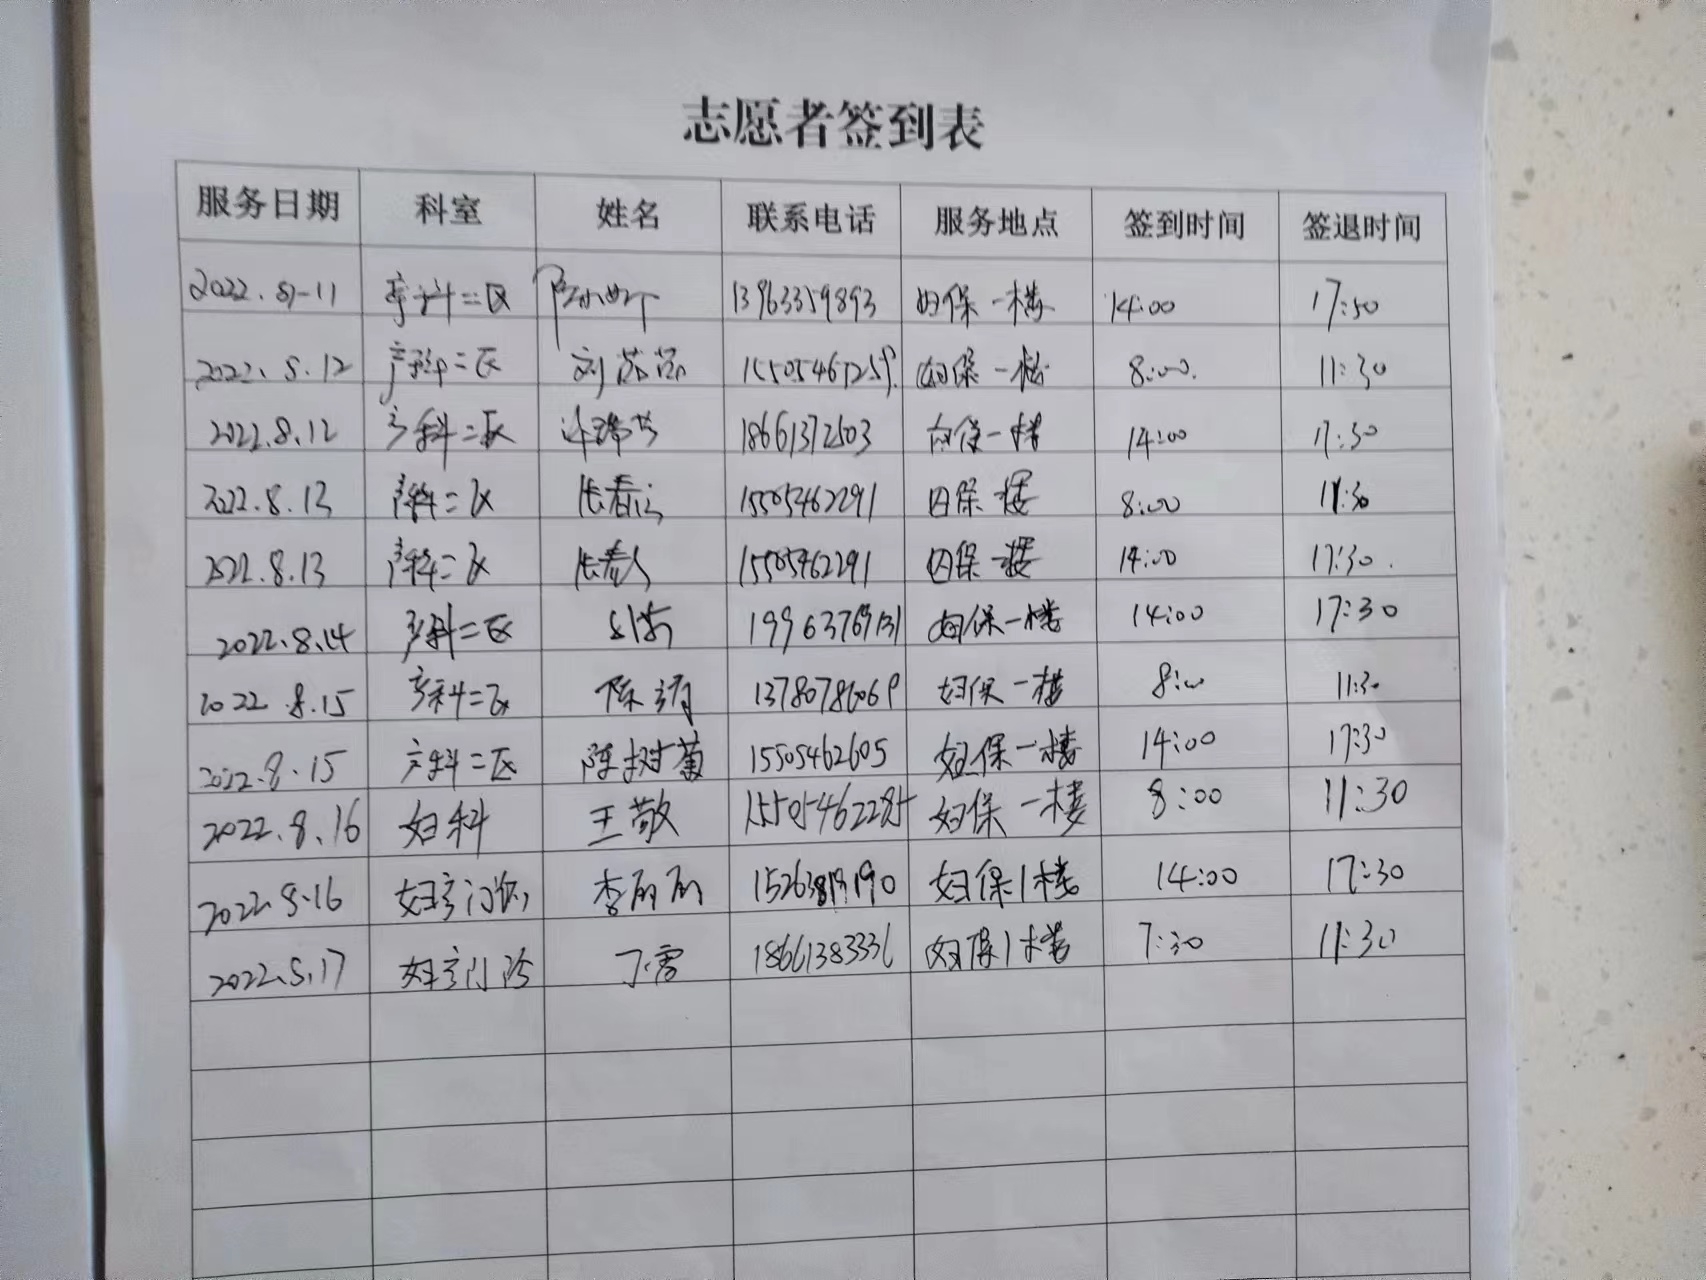 志愿者签到表
服务日期 科室 姓名 联系电话 服务地点 签到时间 签退时间
2022.8-11 产科二区 13963359893 妇保一楼 14:00 17:30
2022.8.12 产科二区 刘 妇保一楼 8:00. 11:30
2022.8.12 产科二区 许 18661372503 妇保一楼 14:00 17:30
2022.8.13 产科二区 张春 15505462291 妇保一楼 8:00 11:30
2022.8.13 产科二区 张春 15505462291 妇保一楼 14:00 17:30.
2022.8.14 产科二区 妇保一楼 14:00 17:30
2022.8.15 产科二区 陈 妇保一楼 8:00 11:30
2022.8.15 产科二区 陈树菊 15505462605 妇保一楼 14:00 17:30
2022.8.16 妇科 王敬 15505462285 妇保一楼 8:00 11:30
2022.8.16 妇产门诊 李丽丽 妇保1楼 14:00 17:30
2022.8.17 妇产门诊 丁雪 18661383336 妇保1楼 7:30 11:30